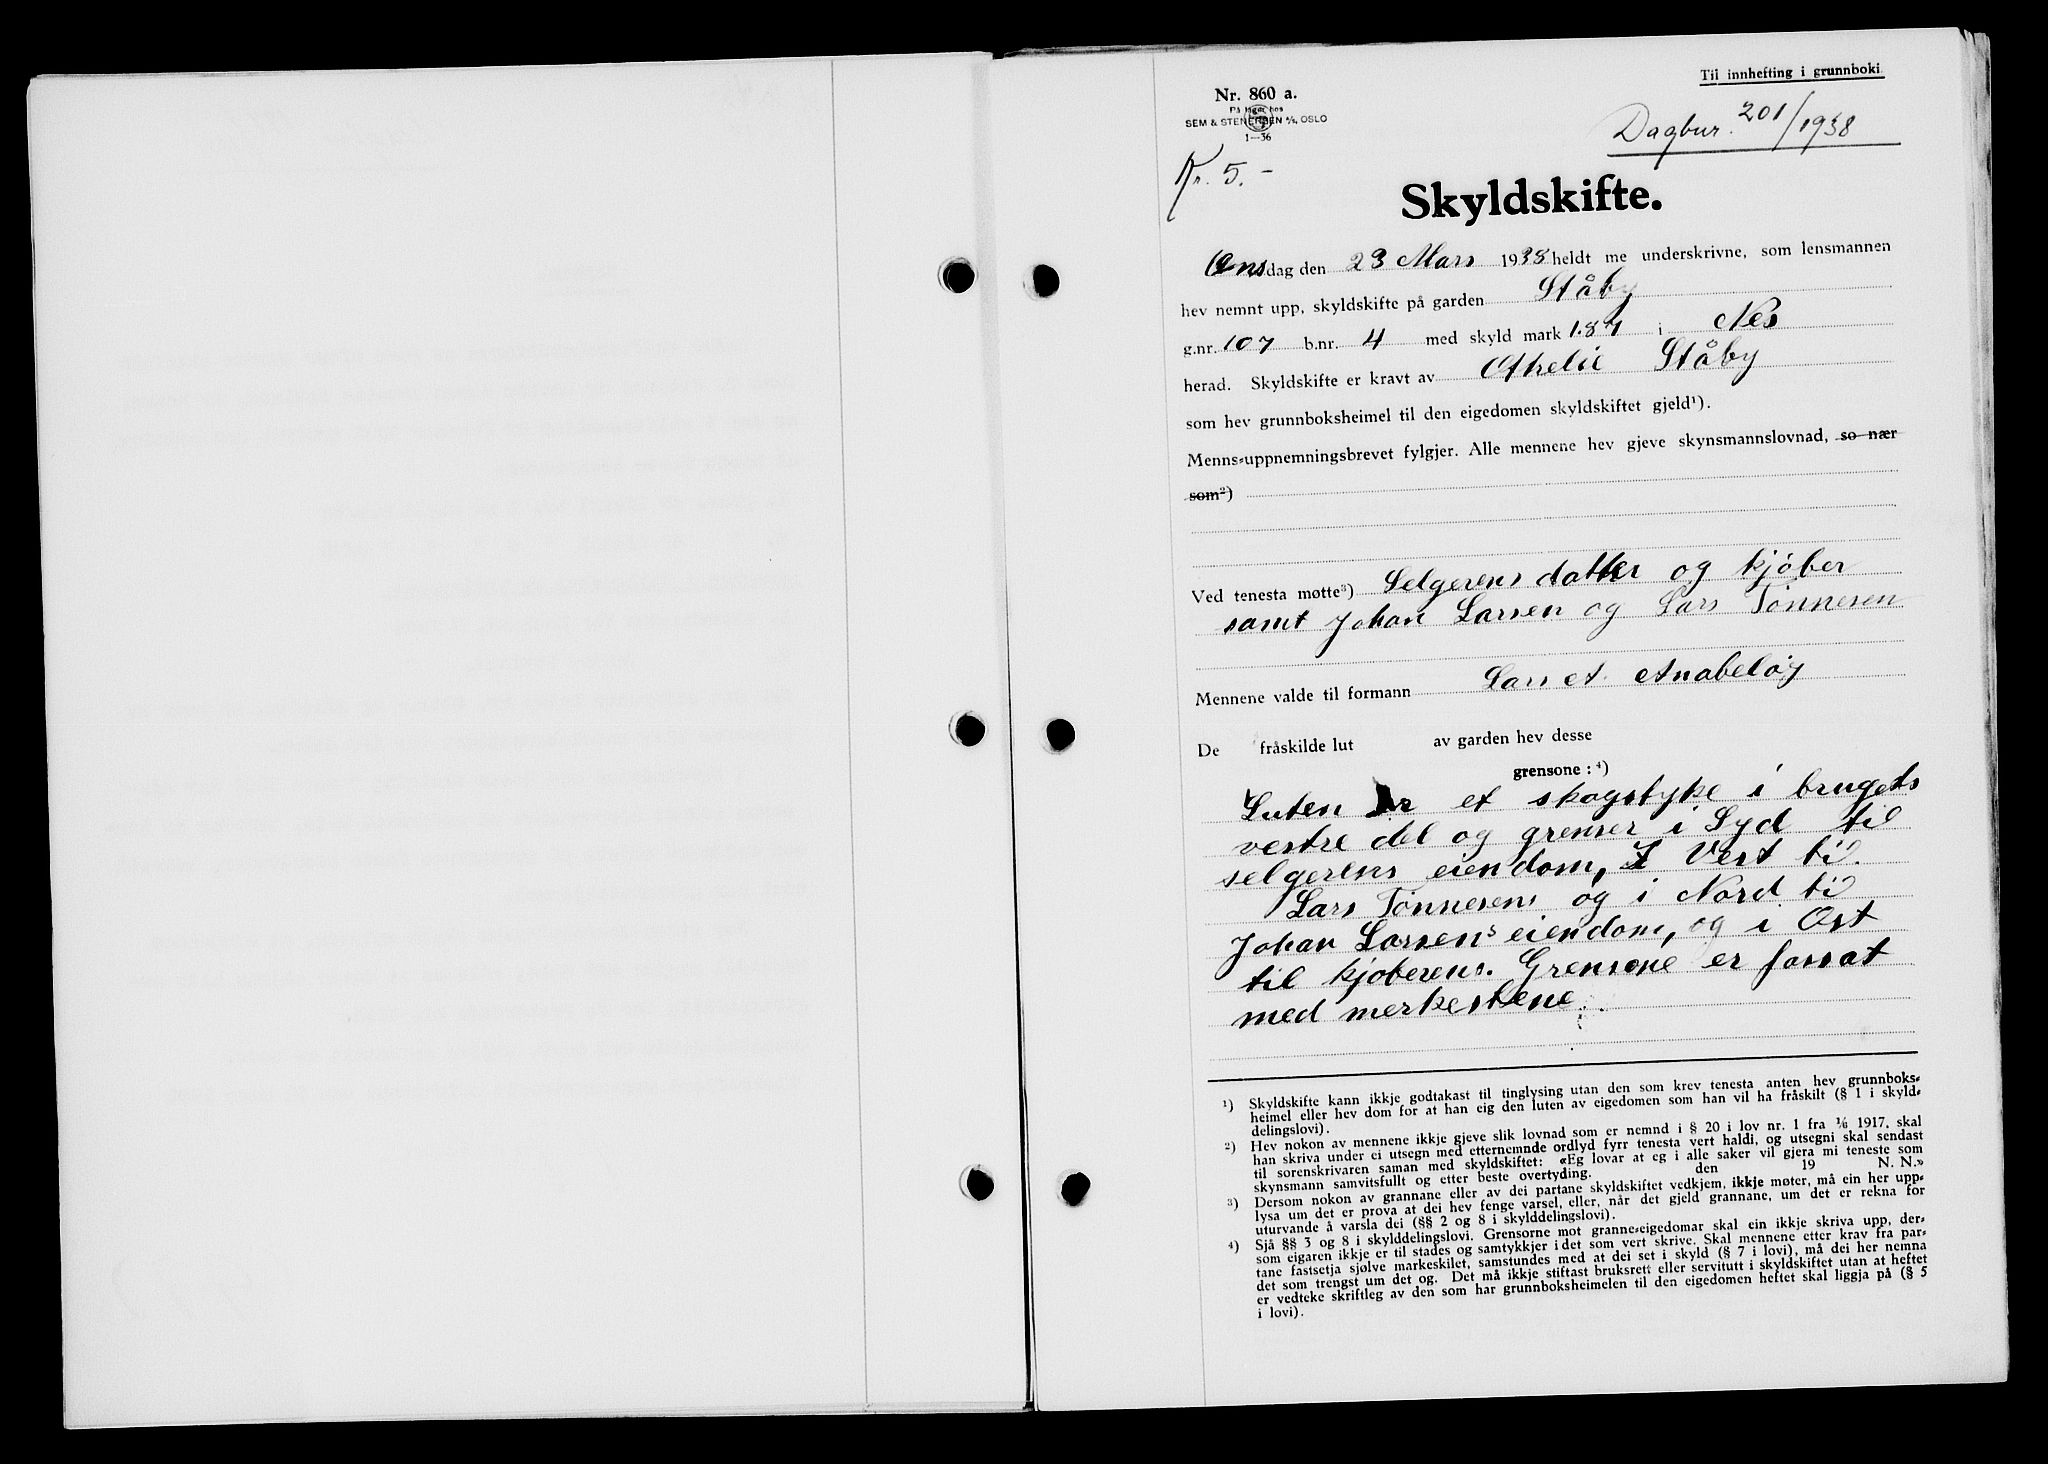 Til innhefting i grunnboki
Nr. 860 a.
På lager hos
SEM & STENERSEN A/S, OSLO
1—36
Dagbnr. 201/1938
Kr. 5.-
Skyldskifte.
Onsdag den 23 Mars 1938 heldt me underskrivne, som lensmannen
hev nemnt upp, skyldskifte på garden Ståby
g.nr. 107 b.nr. 4 med skyld mark 1.87 i Nes
herad. Skyldskifte er kravt av Othelie Ståby
som hev grunnboksheimel til den eigedomen skyldskiftet gjeld¹).
Menns-uppnemningsbrevet fylgjer. Alle mennene hev gjeve skynsmannslovnad, so nær
som²)
Ved tenesta møtte³) Selgerens datter og kjøber
samt Johan Larsen og Lars Tønnesen
Mennene valde til formann Lars A. Anabeløy
De fråskilde lut av garden hev desse
grensone : ⁴)
Luten er et skogstyke i brugets
vestre del og grenser i Syd til
selgerens eiendom, I Vest til
Lars Tønnesens og i Nord til
Johan Larsens eiendom, og i Øst
til kjøberens. Grensene er forsat
med merkestene.
¹) Skyldskifte kann ikkje godtakast til tinglysing utan den som krev tenesta anten hev grunnboks-
heimel eller hev dom for at han eig den luten av eigedomen som han vil ha fråskilt (§ 1 i skyld-
delingslovi).
²) Hev nokon av mennene ikkje gjeve slik lovnad som er nemnd i § 20 i lov nr. 1 fra 1/6 1917, skal
han skriva under ei utsegn med etternemnde ordlyd fyrr tenesta vert haldi, og utsegni skal sendast
til sorenskrivaren saman med skyldskiftet: «Eg lovar at eg i alle saker vil gjera mi teneste som
skynsmann samvitsfullt og etter beste overtyding. den 19 N. N.»
³) Dersom nokon av grannane eller av dei partane skyldskiftet vedkjem, ikkje møter, må ein her upp-
lysa um det er prova at dei hev fenge varsel, eller, når det gjeld grannane, um det er rekna for
uturvande å varsla dei (§§ 2 og 8 i skylddelingslovi).
⁴) Sjå §§ 3 og 8 i skylddelingslovi. Grensorne mot granne-eigedomar skal ein ikkje skriva upp, der-
som eigaren ikkje er til stades og samtykkjer i det som vert skrive. Skal mennene etter krav fra par-
tane fastsetja sjølve markeskilet, samstundes med at dei set i skyld (§ 7 i lovi), må dei her nemna
det som trengst um det og. Det må ikkje stiftast bruksrett eller servitutt i skyldskiftet utan at heftet
er vedteke skriftleg av den som har grunnboksheimelen til den eigedomen heftet skal liggja på (§ 5
i lovi).